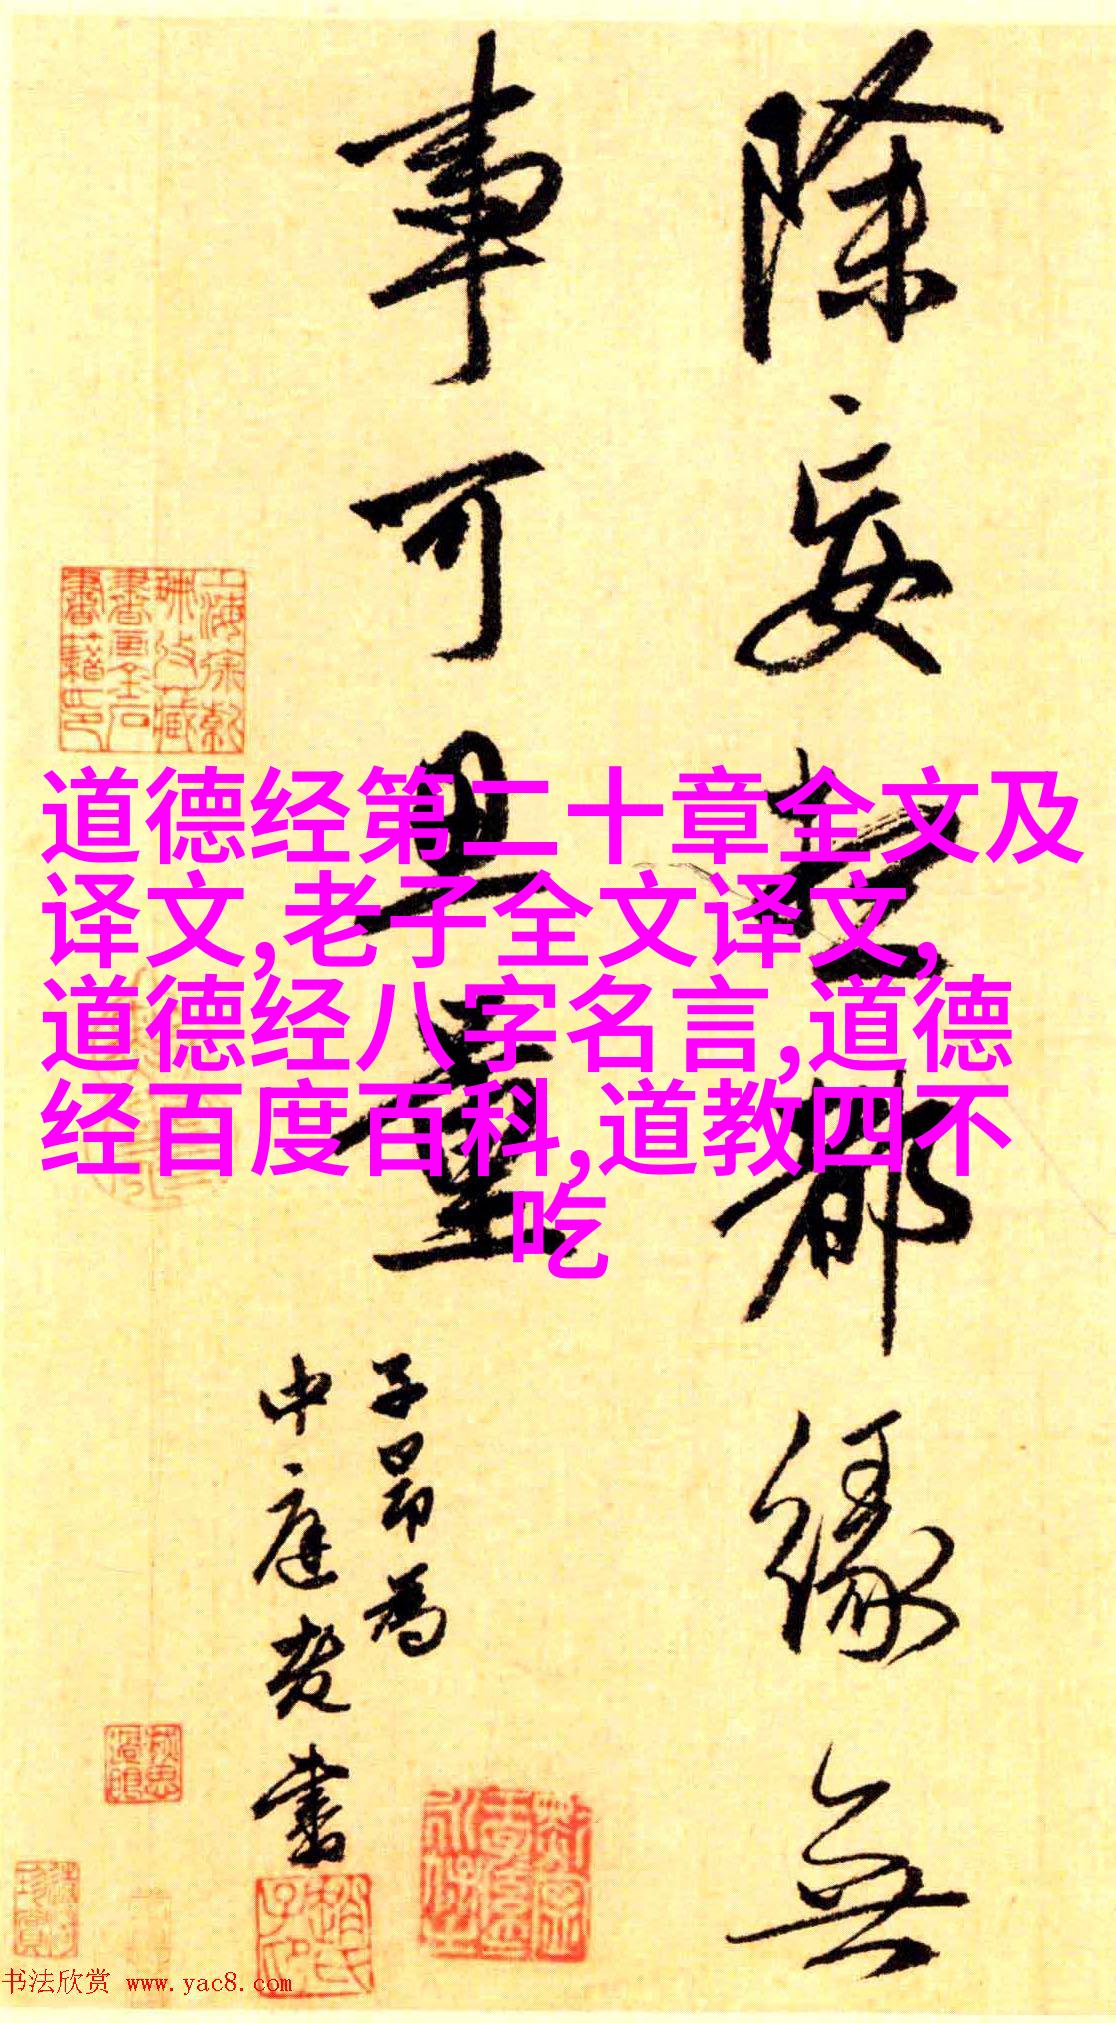 除妄想都緣無
事可思量
子昂為
中庭老書
道德经第二十章全文及
译文,老子全文译文,
道德经八字名言,道德
经百度百科,道教四不
吃
趙氏子印
书法欣赏 www.yac8.com